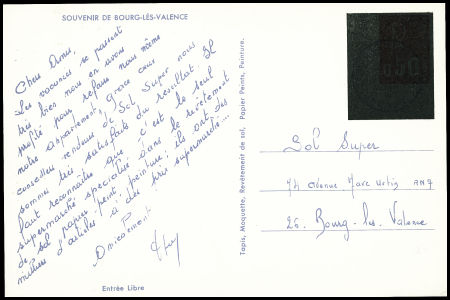 SOUVENIR DE BOURG-LÈS-VALENCE
Chers Amis,
Les vacances se passent
très bien nous en avons
profité pour refaire nous même
notre appartement, grace aux
conseiller vendeurs de Sol Super nous
sommes très satisfaits du résultat. Il
faut reconnaître que c'est le seul
supermarché spécialisé dans le revêtement
de sol, papier peint, peinture; ils ont des
milliers d'articles à des prix supermarchés...
Amicalement
Entrée Libre
Tapis, Moquette, Revêtement de sol, Papier Peints, Peinture.
Sol Super
74 avenue Marc Urtin RN7
26. Bourg-les-Valence